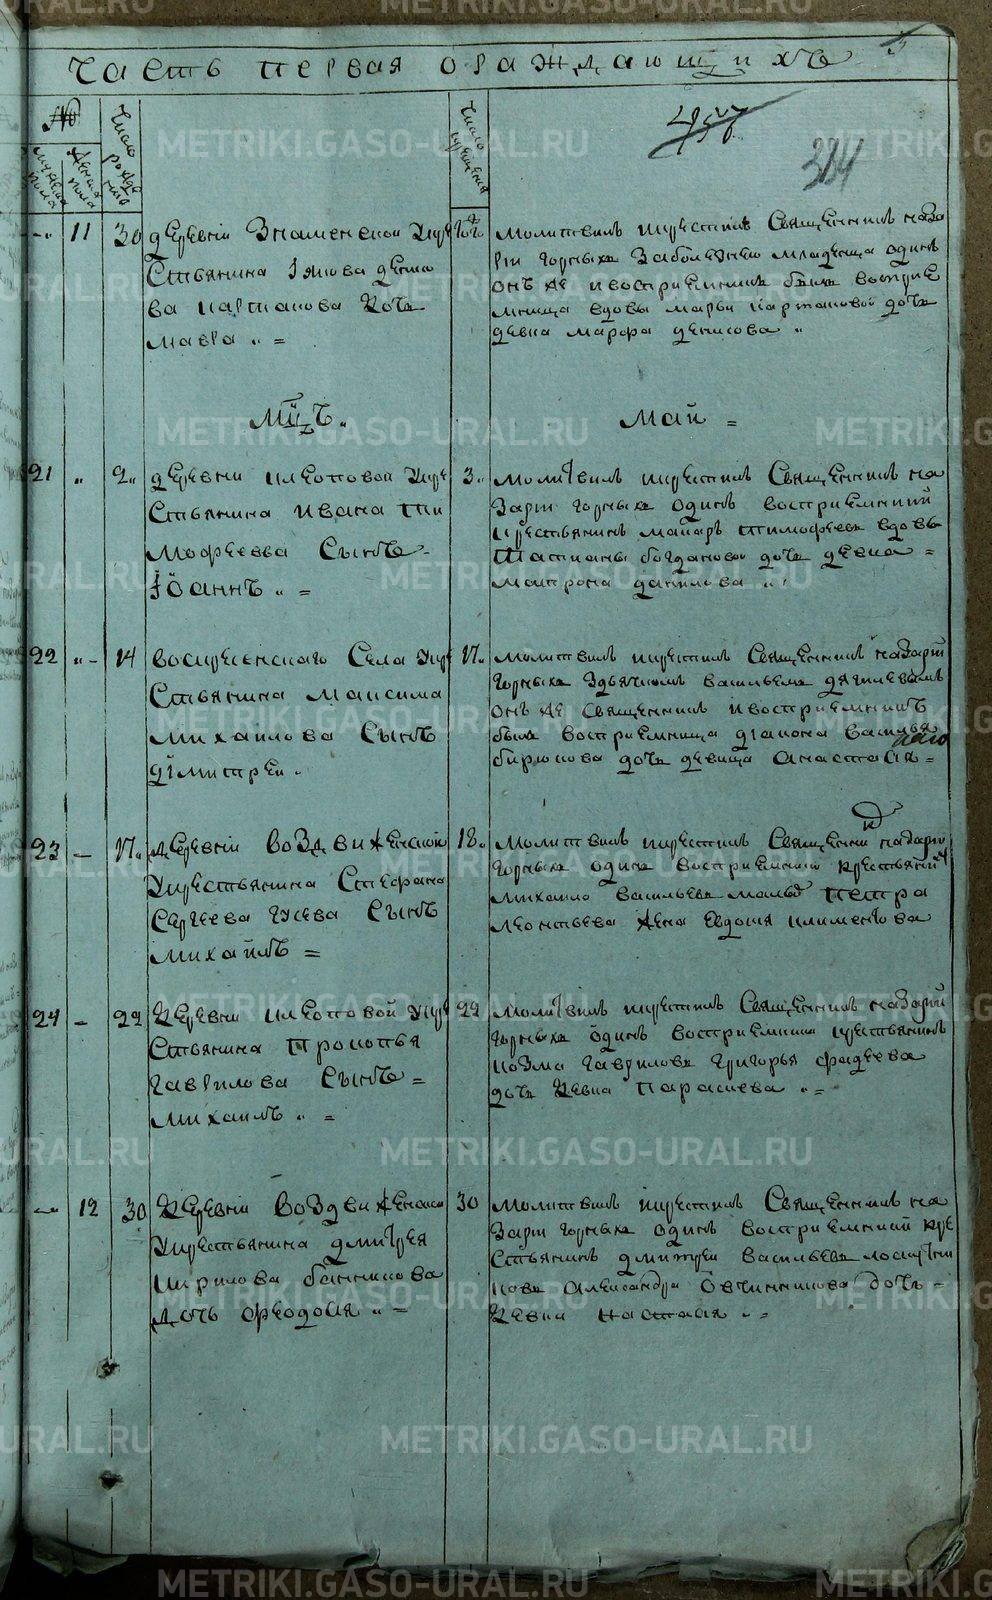 Часть первая ораждающихъ
№
Число рожде ния
Число крещения
мужеска пола
женска пола
324
11 30 деревни Знаменской кре
стьянина Iякова денисо
ва картакова доч
мавра
молитвилъ крестилъ Священникъ наза
рiи горныхъ Заболезнею младенца одинъ
онъ же ивосприемникъ былъ восприе
мница вдовы марьи картаковой доч
девка марфа денисова
мцъ
май
21 2 деревни клеоповой кре
стьянина ивана ти
мофеева Сынъ
Iоаннъ
3 молитвилъ крестилъ Священникъ на
Зарiи горныхъ одинъ восприемникъ
крестьянинъ Тимофеевъ вдовы
Татианы богдановой доч девка
матрона данилова
22 14 воскресенскаго Села кре
стьянина максима
михаилова Сынъ
дiмитрей
17 молитвилъ крестилъ Священникъ наЗарiй
горныхъ Здьячкомъ васильемъ дягилевымъ
онъ же Священникъ ивосприемникъ
былъ восприемница дiакона василья
бирюкова доч девица Анастасiя
23 17 деревни воздвиженской
крестьянина Стефана
Сергеева гусева Сынъ
михаилъ
18 молитвилъ крестилъ Священникъ наЗарiй
горныхъ одинъ восприемникъ крестьянинъ
михаило васильевъ петра
леонтьева жена евдокия климентова
24 22 деревни клеоповой кре
стьянина Прокопья
гаврилова Сынъ
михаилъ
22 молитвилъ крестилъ Священникъ наЗарiй
горныхъ одинъ восприемникъ крестьянинъ
козма гавриловъ григорья фадеева
доч девка Параскева
12 30 деревни воздвиженской
крестьянина дмитрея
кирилова банникова
дочь феодосiя
30 молитвилъ крестилъ Священникъ на
Зарiи горныхъ одинъ восприемникъ кре
стьянинъ дмитреи васильевъ
Александра Овчинникова дочь
девка настасiя
METRIKI.GASO-URAL.RU